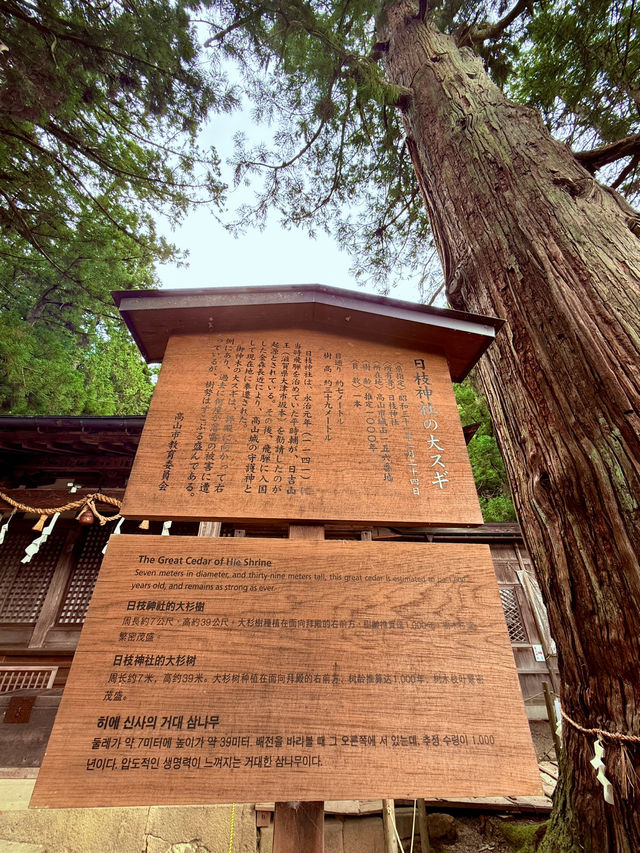 日枝神社の大スギ
(所在地) 高山市城山一五六番地
(所有者) 日枝神社
(樹齢) 推定一〇〇〇年
(員数) 一本
目通り 約七メートル
樹高 約三十九メートル
日枝神社は、永治元年(一一四一)に
当時飛騨を治めていた平時輔が、日吉山
王(滋賀県大津市坂本)を勧請したのが
起源とされている。その後、飛騨に入国
した金森長近により、高山城の守護神と
して現在地に奉遷された。
御神木の大スギは、拝殿に向かって右
側にあり、過去に何度か落雷の被害に遭
っているが、樹勢はすこぶる盛んである。
高山市教育委員会
The Great Cedar of Hie Shrine
Seven meters in diameter, and thirty-nine meters tall, this great cedar is estimated to be 1,000
years old, and remains as strong as ever.
日枝神社的大杉樹
周長約7公尺，高約39公尺，大杉樹種植在面向拜殿的右前方，樹齡推算達1,000年，樹木枝葉
繁密茂盛。
日枝神社的大杉树
周长约7米，高约39米。大杉树种植在面向拜殿的右前方，树龄推算达1,000年，树木枝叶繁密
茂盛。
히에 신사의 거대 삼나무
둘레가 약 7미터에 높이가 약 39미터. 배전을 바라볼 때 그 오른쪽에 서 있는데, 추정 수령이 1,000
년이다. 압도적인 생명력이 느껴지는 거대한 삼나무이다.